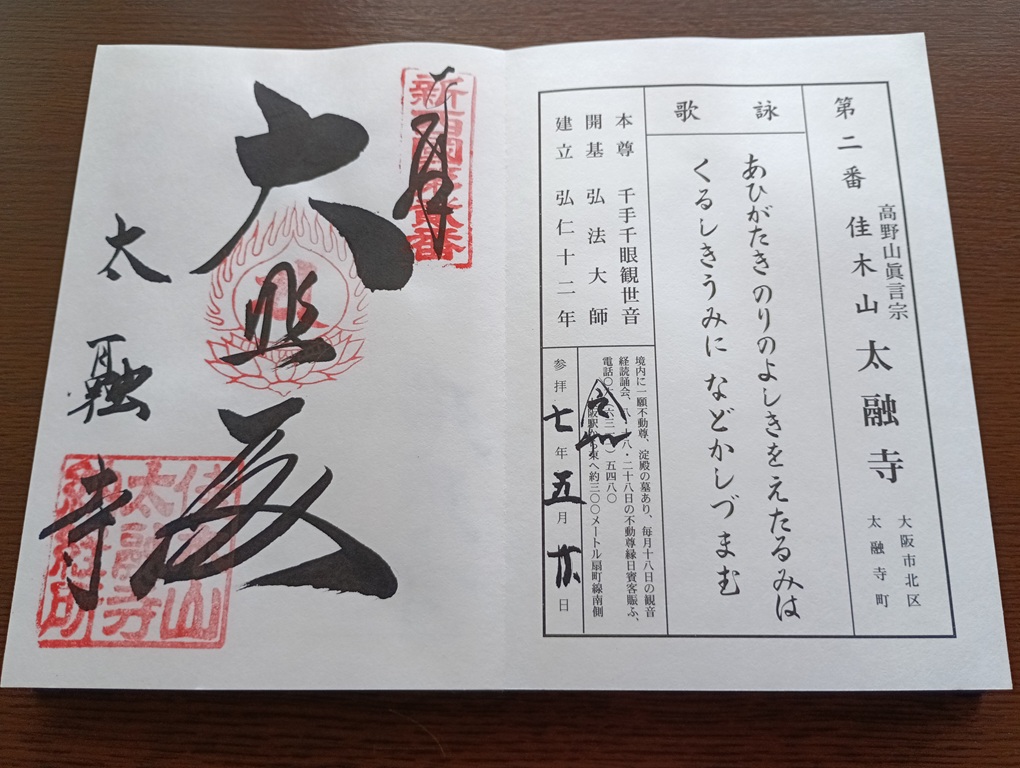 第二番
高野山眞言宗
佳木山 太融寺
大阪市北区
太融寺町
詠歌
あひがたきのりのよしきをえたるみは
くるしきうみになどかしづまむ
本尊 千手千眼観世音
開基 弘法大師
建立 弘仁十二年
境内に一願不動尊、淀殿の墓あり、毎月十八日の観音
経読誦会、八・二十八日の不動尊縁日賓客賑ふ、
電話〇六 五四八〇
阪駅 東へ約三〇〇メートル扇町線南側
令和
参拝 七年 五月 廿日
新西国第貳番
奉拝
大悲殿
太融寺
佳木山
太融寺
納経印